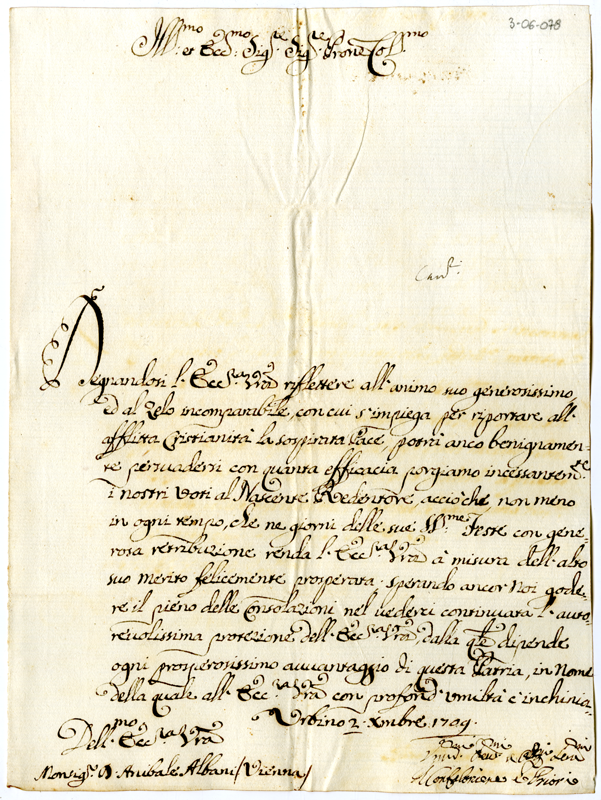 3-06-078
Ill.mo et Ecc.mo Sig.re Sig.re Prone Coll.mo
Degnandosi l'Ecc.za Vrã riflettere all'animo suo generosissimo,
ed al zelo incomparabile, con cui s'impiega per riportare all'
afflitta Cristianità la sospirata Pace, potrà anco benignamen-
te persuadersi con quanta efficacia porgiamo incessantem.te
i nostri Voti al Nascente Redentore, acciò che, non meno
in ogni tempo, che ne giorni delle sue SS.me Feste con gene-
rosa retribuzione renda l'Ecc.za Vrã à misura dell'alto
suo merito felicemente prosperata: sperando ancor Noi gode-
re il pieno delle Consolazioni nel vederci continuata l'auto-
revolissima protezione dell'Ecc.za Vrã, dalla qle dipende
ogni prosperosissimo avvantaggio di questa Patria, in Nome
della quale all'Ecc.za Vrã con profond.a umiltà c'inchinia-
Urbino 2. Xmbre 1709.
Dell'Ecc.za Vrã
Monsig.r D. Anibale Albani (Vienna)
Il Confaloniere e Priori